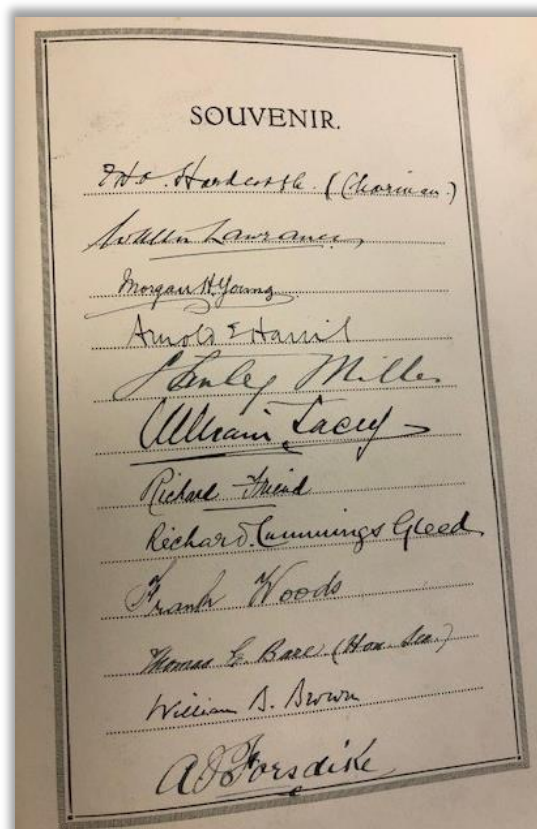 SOUVENIR.
Hardcastle. (Chairman.)
Walter Lawrance
Morgan H. Young
Arnold E Harris
Stanley Miller
William Lacey
Richard Friend
Richard. Cummings Gleed
Frank Woods
Thomas E. Bare. (Hon. Sec.)
William B. Brown
A J Forsdike